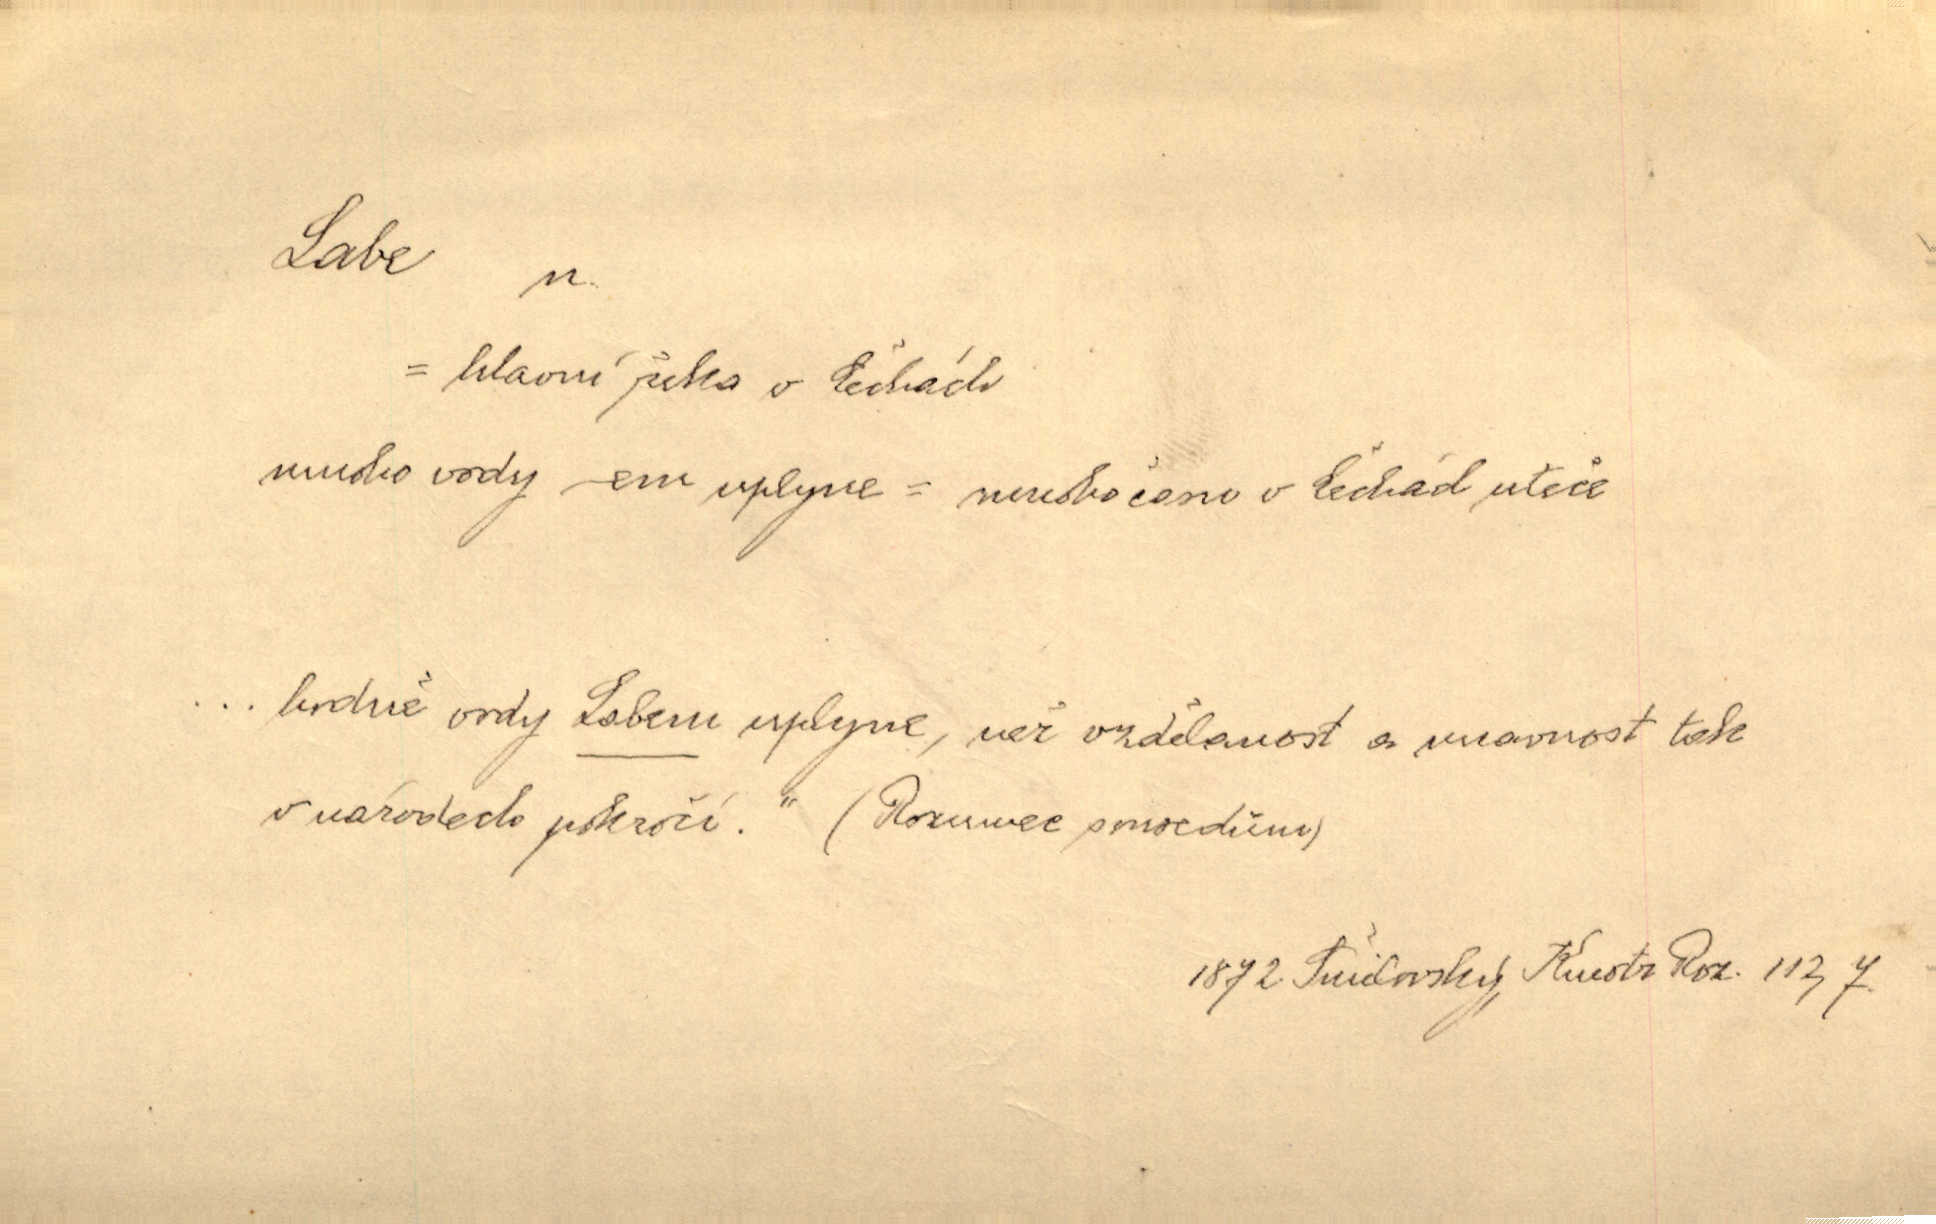 Labe n.
= hlavní řeka v Čechách
mnoho vody -em uplyne = mnoho času v Čechách uteče
... hodně vody Labem uplyne, než vzdělanost a mravnost tak
v národech pokročí." (Rozumec sousedům)
1872 Šmilovský, Kmotr Roz. 112, 7.